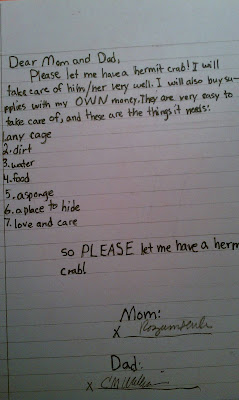 Dear Mom and Dad,
Please let me have a hermit crab! I will
take care of him/her very well. I will also buy su-
pplies with my OWN money. They are very easy to
take care of, and these are the things it needs:
1. any cage
2. dirt
3. water
4. food
5. a sponge
6. a place to hide
7. love and care
so PLEASE let me have a herm
crab!
Mom:
X
Dad:
X